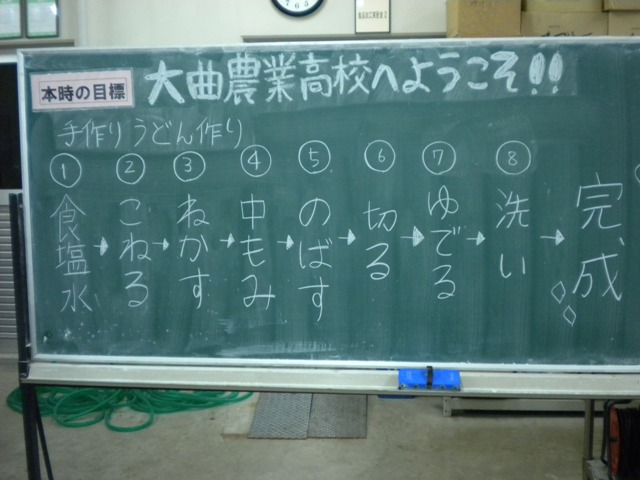 本時の目標
大曲農業高校へようこそ!!
手作りうどん作り
① 食塩水
② こねる
③ ねかす
④ 中もみ
⑤ のばす
⑥ 切る
⑦ ゆでる
⑧ 洗い
完成